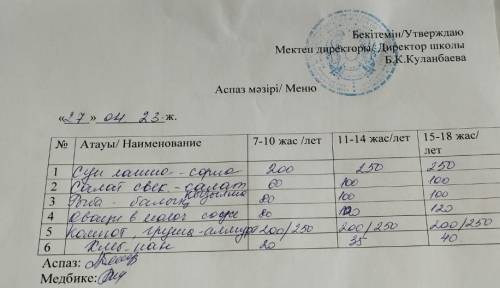 Бекітемін/Утверждаю
Мектеп директоры/ Директор школы
Б.К.Куланбаева
Аспаз мәзірі/ Меню
«27» 04 23 ж.
№ Атауы/ Наименование 7-10 жас /лет 11-14 жас /лет 15-18 жас/ лет
1 Суп лапша - сорпа 200 250 250
2 Салат свек. - салат 60 100 100
3 балық 80 100 100
4 Овощи в молоч соусе 80 120 120
5 Компот, груша-алмұрт 200/250 200/250 200/250
6 Хлеб-нан 20 35 40
Аспаз:
Медбике: